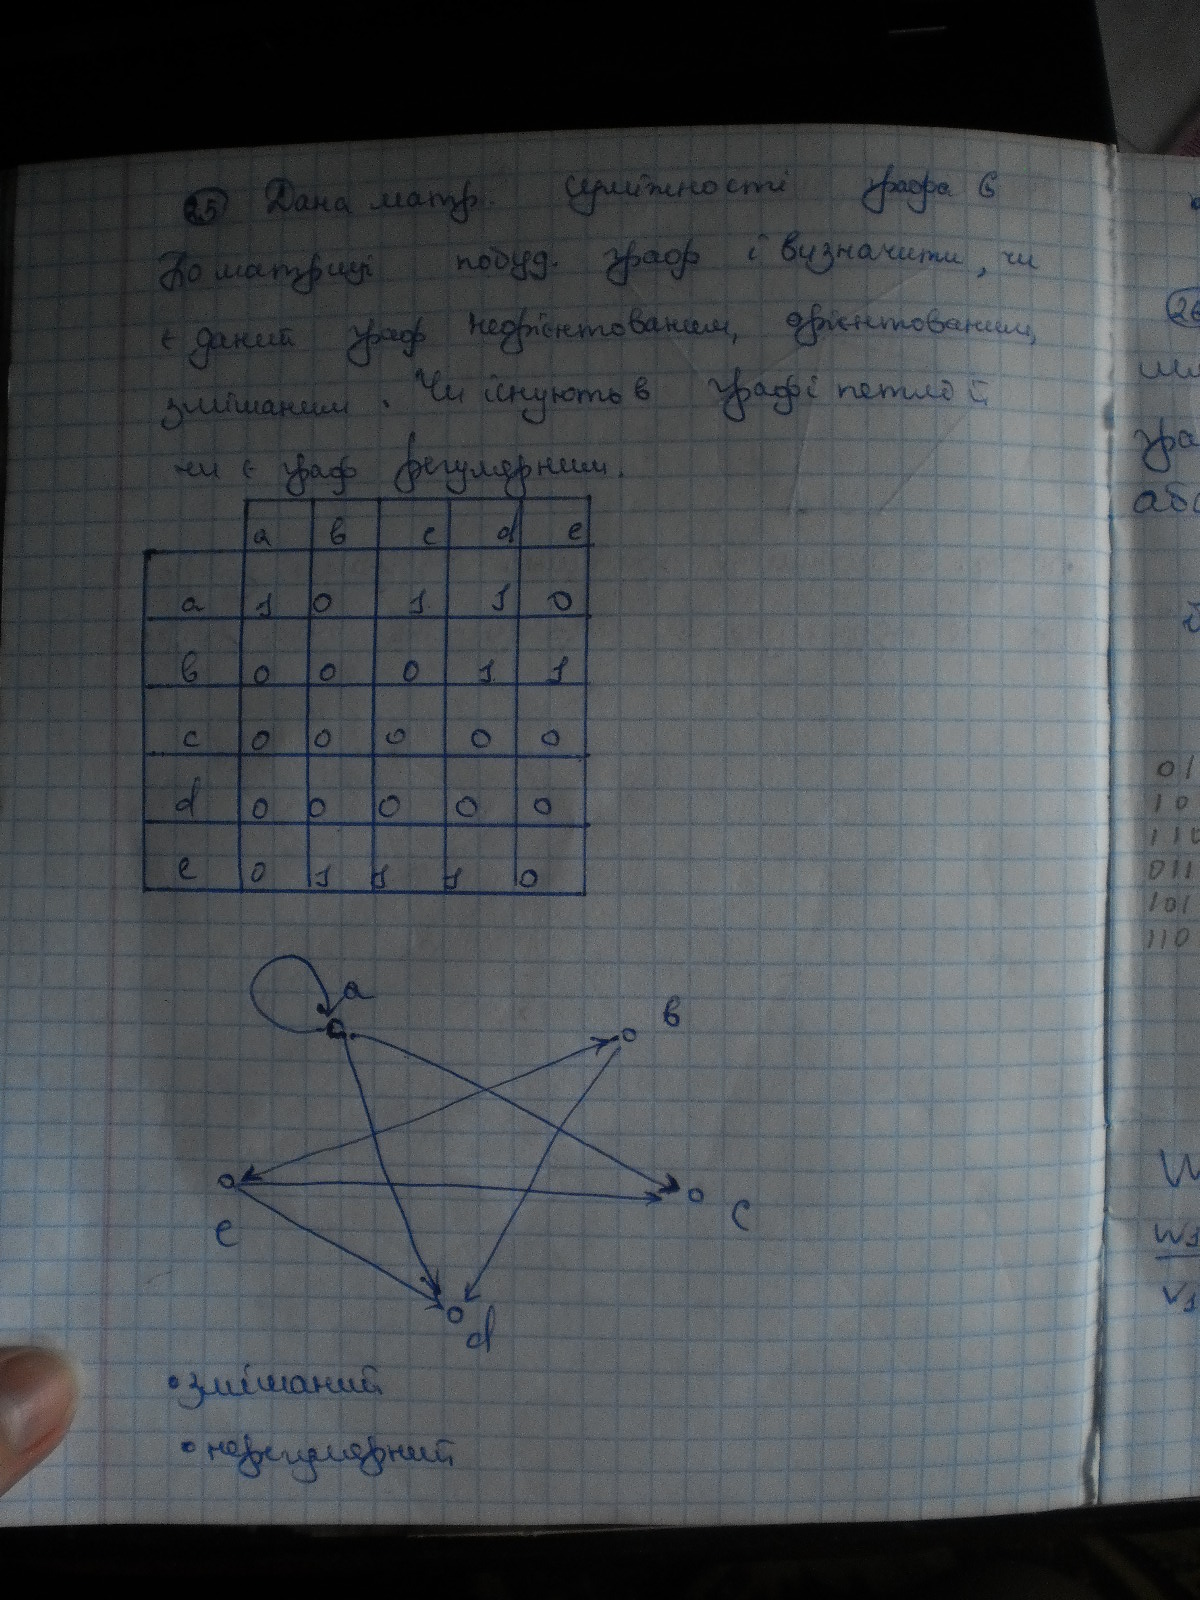 25 Дана матр. суміжності графа G
По матриці побуд. граф і визначити, чи
є даний граф неорієнтованим, орієнтованим,
змішаним. Чи існують в графі петлі й
чи є граф регулярним.
a b c d e
a 1 0 1 1 0
b 0 0 0 1 1
c 0 0 0 0 0
d 0 0 0 0 0
e 0 1 1 1 0
a
b
e
c
d
• змішаний
• нерегулярний
26
гра
01
10
110
011
101
110
W
w1
v1